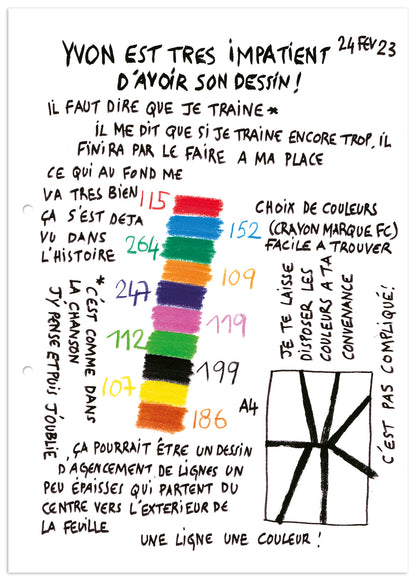 YVON EST TRES IMPATIENT
24 FEV 23
D'AVOIR SON DESSIN !
IL FAUT DIRE QUE JE TRAINE *
IL ME DIT QUE SI JE TRAINE ENCORE TROP, IL
FINIRA PAR LE FAIRE A MA PLACE
CE QUI AU FOND ME
VA TRES BIEN
ÇA S'EST DEJA
VU DANS
L'HISTOIRE
115
152
264
109
247
119
112
199
107
186
CHOIX DE COULEURS
(CRAYON MARQUE FC)
FACILE A TROUVER
JE TE LAISSE
DISPOSER LES
COULEURS A TA
CONVENANCE
C'EST PAS COMPLIQUÉ!
* C'EST COMME DANS
LA CHANSON
J'Y PENSE ET PUIS J'OUBLIE
A4
ÇA POURRAIT ÊTRE UN DESSIN
D'AGENCEMENT DE LIGNES UN
PEU ÉPAISSES QUI PARTENT DU
CENTRE VERS L'EXTERIEUR DE
LA FEUILLE
UNE LIGNE UNE COULEUR !